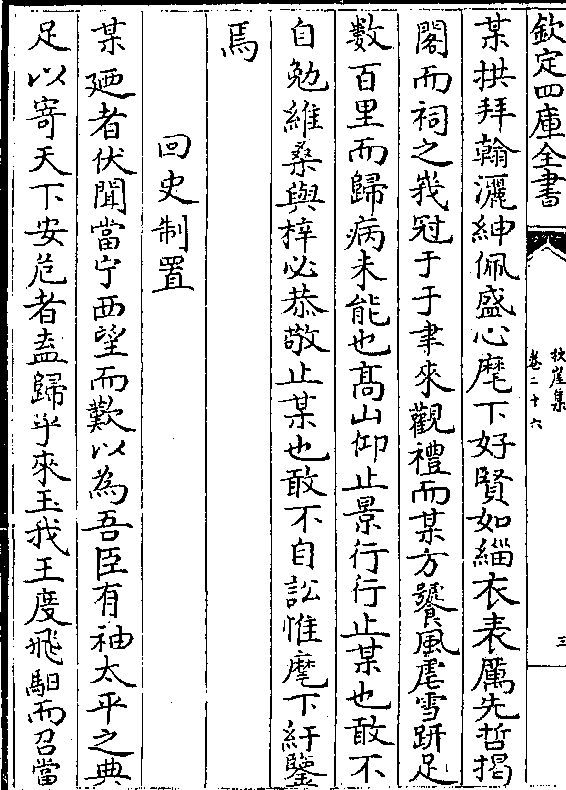 欽定四庫全書
秋崖集
卷二十六
三
某拱拜翰灑紳佩盛心麾下好賢如緇衣表厲先哲揭
閣而祠之峩冠于于聿來觀禮而某方饕風虐雪趼足
數百里而歸病未能也髙山仰止景行行止某也敢不
自勉維桑與梓必恭敬止某也敢不自訟惟麾下紆鑒
焉
回史制置
某廼者伏聞當宁西望而歎以為吾臣有袖太平之典
足以寄天下安危者盍歸乎來玉我王度飛馹而召當